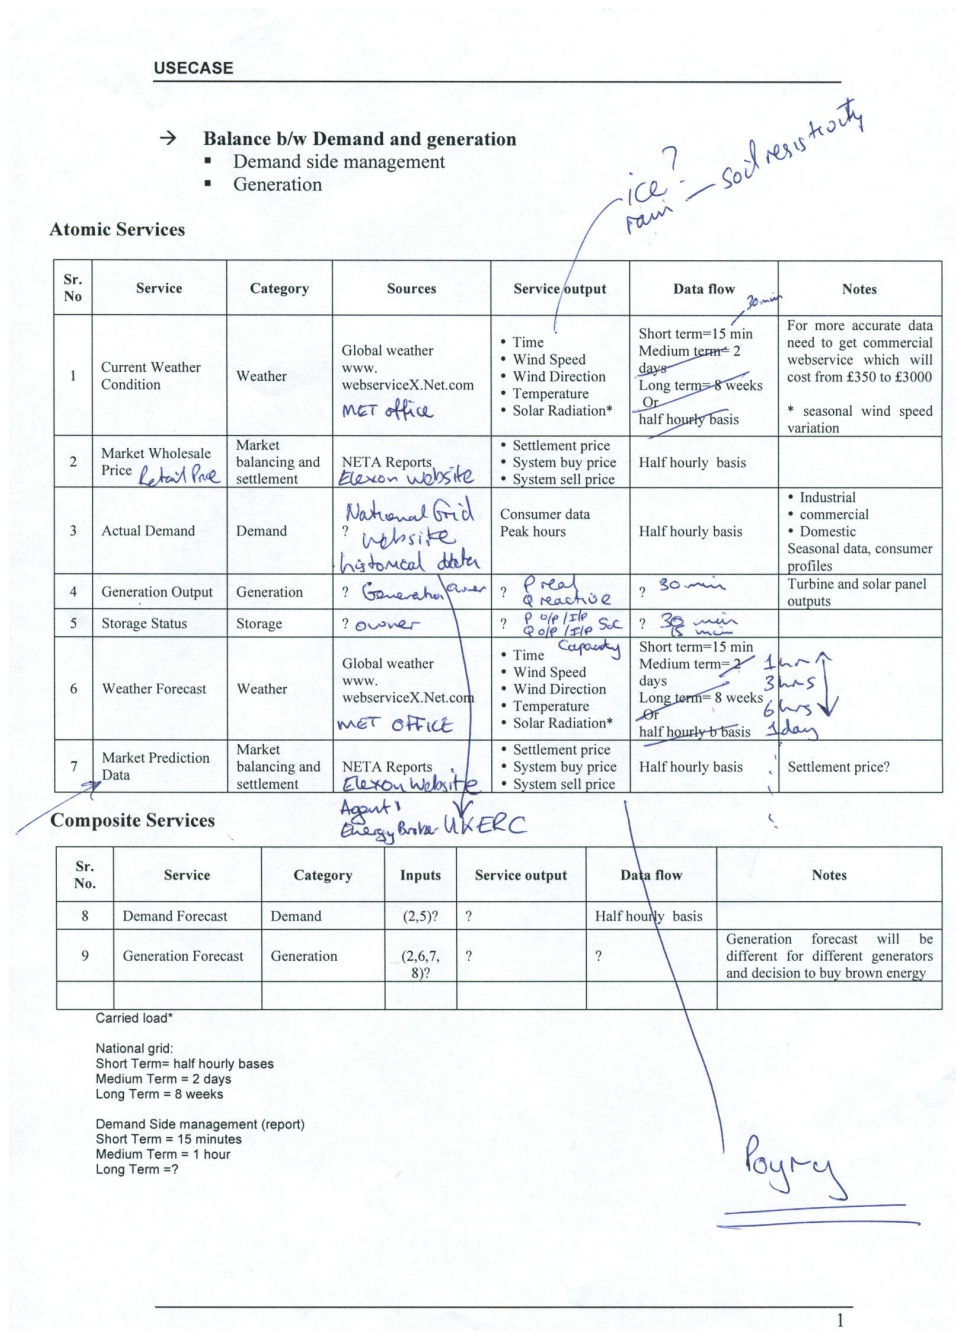 USECASE
→ Balance b/w Demand and generation
▪ Demand side management
▪ Generation
ice?
rain — soil resistivity
Atomic Services
Sr. No Service Category Sources Service output Data flow Notes
30 min
1 Current Weather Condition Weather
Global weather
www.
webserviceX.Net.com
MET office
• Time
• Wind Speed
• Wind Direction
• Temperature
• Solar Radiation*
Short term=15 min
Medium term= 2
days
Long term= 8 weeks
Or
half hourly basis
For more accurate data
need to get commercial
webservice which will
cost from £350 to £3000
* seasonal wind speed
variation
2 Market Wholesale
Price Retail Price
Market
balancing and
settlement
NETA Reports
Elexon Website
• Settlement price
• System buy price
• System sell price
Half hourly basis
3 Actual Demand Demand
National Grid
? website
historical data
Consumer data
Peak hours
Half hourly basis
• Industrial
• commercial
• Domestic
Seasonal data, consumer
profiles
4 Generation Output Generation ? Generation owner
? P real
Q reactive
? 30 min
Turbine and solar panel
outputs
5 Storage Status Storage ? owner
? P o/p /I/p
Q o/p /I/p SoC
Capacity
? 30 min
15 min
6 Weather Forecast Weather
Global weather
www.
webserviceX.Net.com
MET OFFICE
• Time
• Wind Speed
• Wind Direction
• Temperature
• Solar Radiation*
Short term=15 min
Medium term= 2
days
Long term= 8 weeks
Or
half hourly b basis
1hr
3hrs
6hrs
1day
7 Market Prediction
Data
Market
balancing and
settlement
NETA Reports
Elexon Website
Agent
Energy Broker UKERC
• Settlement price
• System buy price
• System sell price
Half hourly basis
Settlement price?
Composite Services
Sr. No. Service Category Inputs Service output Data flow Notes
8 Demand Forecast Demand (2,5)? ? Half hourly basis
9 Generation Forecast Generation (2,6,7,
8)?
? ?
Generation forecast will be
different for different generators
and decision to buy brown energy
Carried load*
National grid:
Short Term= half hourly bases
Medium Term = 2 days
Long Term = 8 weeks
Demand Side management (report)
Short Term = 15 minutes
Medium Term = 1 hour
Long Term =?
Poyry
1